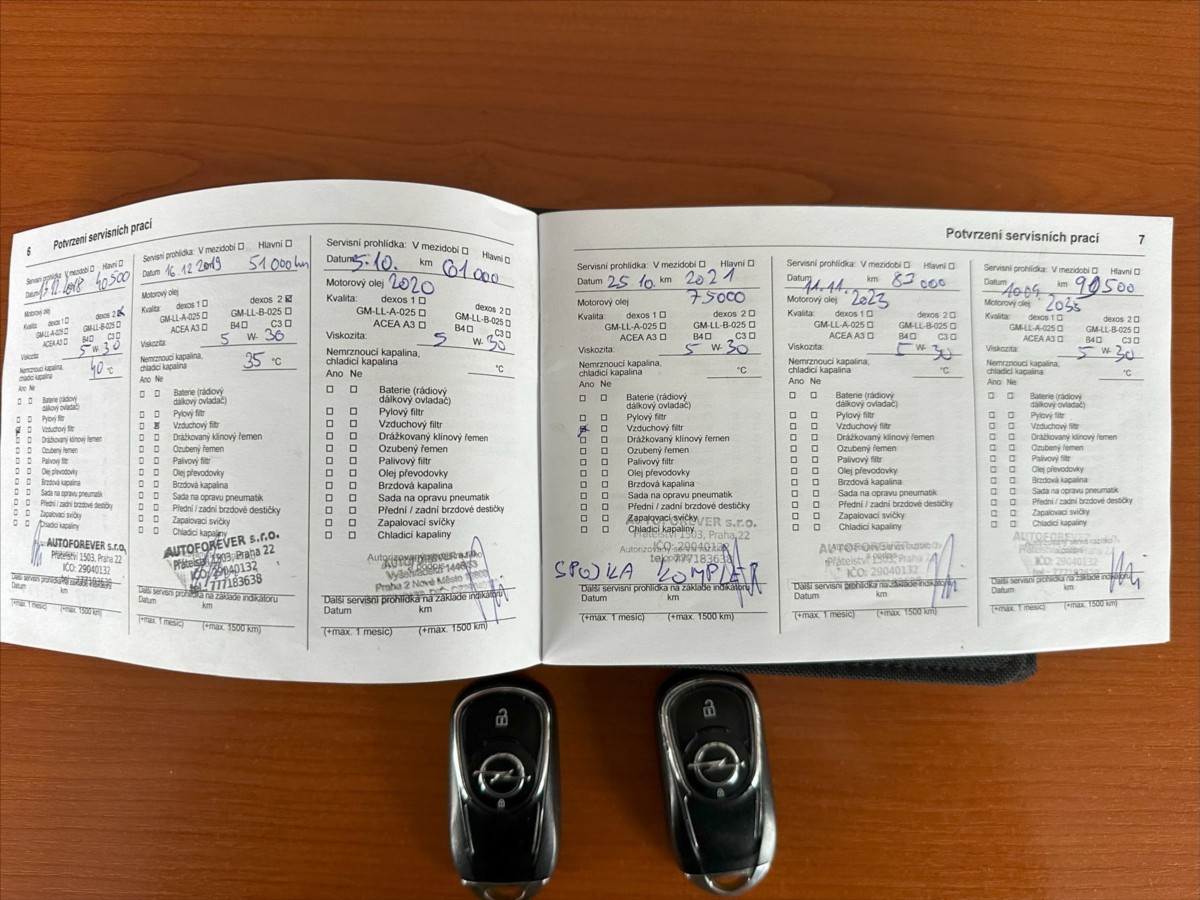 6
Potvrzení servisních prací
Servisní prohlídka: V mezidobí Hlavní
Datum 17.12.2018 40500
Motorový olej
Kvalita: dexos 1 dexos 2
GM-LL-A-025 GM-LL-B-025
ACEA A3 B4 C3
Viskozita: 5 W- 30
Nemrznoucí kapalina,
chladicí kapalina 40 °C
Ano Ne
Baterie (rádiový
dálkový ovladač)
Pylový filtr
Vzduchový filtr
Drážkovaný klínový řemen
Ozubený řemen
Palivový filtr
Olej převodovky
Brzdová kapalina
Sada na opravu pneumatik
Přední / zadní brzdové destičky
Zapalovací svíčky
Chladicí kapaliny
AUTOFOREVER s.r.o.
Přátelství 1503, Praha 22
IČO: 29040132
tel.: 777183638
Další servisní prohlídka na základě indikátoru
Datum km
(+max. 1 měsíc) (+max. 1500 km)
Servisní prohlídka: V mezidobí Hlavní
Datum 16.12 2019 51000 km
Motorový olej
Kvalita: dexos 1 dexos 2
GM-LL-A-025 GM-LL-B-025
ACEA A3 B4 C3
Viskozita: 5 W- 30
Nemrznoucí kapalina,
chladicí kapalina 35 °C
Ano Ne
Baterie (rádiový
dálkový ovladač)
Pylový filtr
Vzduchový filtr
Drážkovaný klínový řemen
Ozubený řemen
Palivový filtr
Olej převodovky
Brzdová kapalina
Sada na opravu pneumatik
Přední / zadní brzdové destičky
Zapalovací svíčky
Chladicí kapaliny
AUTOFOREVER s.r.o.
Přátelství 1503, Praha 22
IČO: 29040132
tel.: 777183638
Další servisní prohlídka na základě indikátoru
Datum km
(+max. 1 měsíc) (+max. 1500 km)
Servisní prohlídka: V mezidobí Hlavní
Datum 5.10. km 61.000
Motorový olej 2020
Kvalita: dexos 1 dexos 2
GM-LL-A-025 GM-LL-B-025
ACEA A3 B4 C3
Viskozita: 5 W- 30
Nemrznoucí kapalina,
chladicí kapalina °C
Ano Ne
Baterie (rádiový
dálkový ovladač)
Pylový filtr
Vzduchový filtr
Drážkovaný klínový řemen
Ozubený řemen
Palivový filtr
Olej převodovky
Brzdová kapalina
Sada na opravu pneumatik
Přední / zadní brzdové destičky
Zapalovací svíčky
Chladicí kapaliny
Praha 2 Nové Město
Další servisní prohlídka na základě indikátoru
Datum km
(+max. 1 měsíc) (+max. 1500 km)
Potvrzení servisních prací 7
Servisní prohlídka: V mezidobí Hlavní
Datum 25 10. km 2021
Motorový olej 75000
Kvalita: dexos 1 dexos 2
GM-LL-A-025 GM-LL-B-025
ACEA A3 B4 C3
Viskozita: 5 W- 30
Nemrznoucí kapalina,
chladicí kapalina °C
Ano Ne
Baterie (rádiový
dálkový ovladač)
Pylový filtr
Vzduchový filtr
Drážkovaný klínový řemen
Ozubený řemen
Palivový filtr
Olej převodovky
Brzdová kapalina
Sada na opravu pneumatik
Přední / zadní brzdové destičky
Zapalovací svíčky
Chladicí kapaliny
AUTOFOREVER s.r.o.
Přátelství 1503, Praha 22
IČO: 29040132
tel.: 777183638
SPOJKA KOMPLET
Další servisní prohlídka na základě indikátoru
Datum km
(+max. 1 měsíc) (+max. 1500 km)
Servisní prohlídka: V mezidobí Hlavní
Datum 11.11. km 83 000
Motorový olej 2023
Kvalita: dexos 1 dexos 2
GM-LL-A-025 GM-LL-B-025
ACEA A3 B4 C3
Viskozita: 5 W- 30
Nemrznoucí kapalina,
chladicí kapalina °C
Ano Ne
Baterie (rádiový
dálkový ovladač)
Pylový filtr
Vzduchový filtr
Drážkovaný klínový řemen
Ozubený řemen
Palivový filtr
Olej převodovky
Brzdová kapalina
Sada na opravu pneumatik
Přední / zadní brzdové destičky
Zapalovací svíčky
Chladicí kapaliny
AUTOFOREVER
Přátelství 1503, Praha 22
IČO: 29040132
Další servisní prohlídka na základě indikátoru
Datum km
(+max. 1 měsíc) (+max. 1500 km)
Servisní prohlídka: V mezidobí Hlavní
Datum km 500
Motorový olej
Kvalita: dexos 1 dexos 2
GM-LL-A-025 GM-LL-B-025
ACEA A3 B4 C3
Viskozita: 5 W- 30
Nemrznoucí kapalina,
chladicí kapalina °C
Ano Ne
Baterie (rádiový
dálkový ovladač)
Pylový filtr
Vzduchový filtr
Drážkovaný klínový řemen
Ozubený řemen
Palivový filtr
Olej převodovky
Brzdová kapalina
Sada na opravu pneumatik
Přední / zadní brzdové destičky
Zapalovací svíčky
Chladicí kapaliny
Přátelství 1503, Praha 22
IČO: 29040132
Další servisní prohlídka na základě indikátoru
Datum km
(+max. 1 měsíc) (+max. 1500 km)